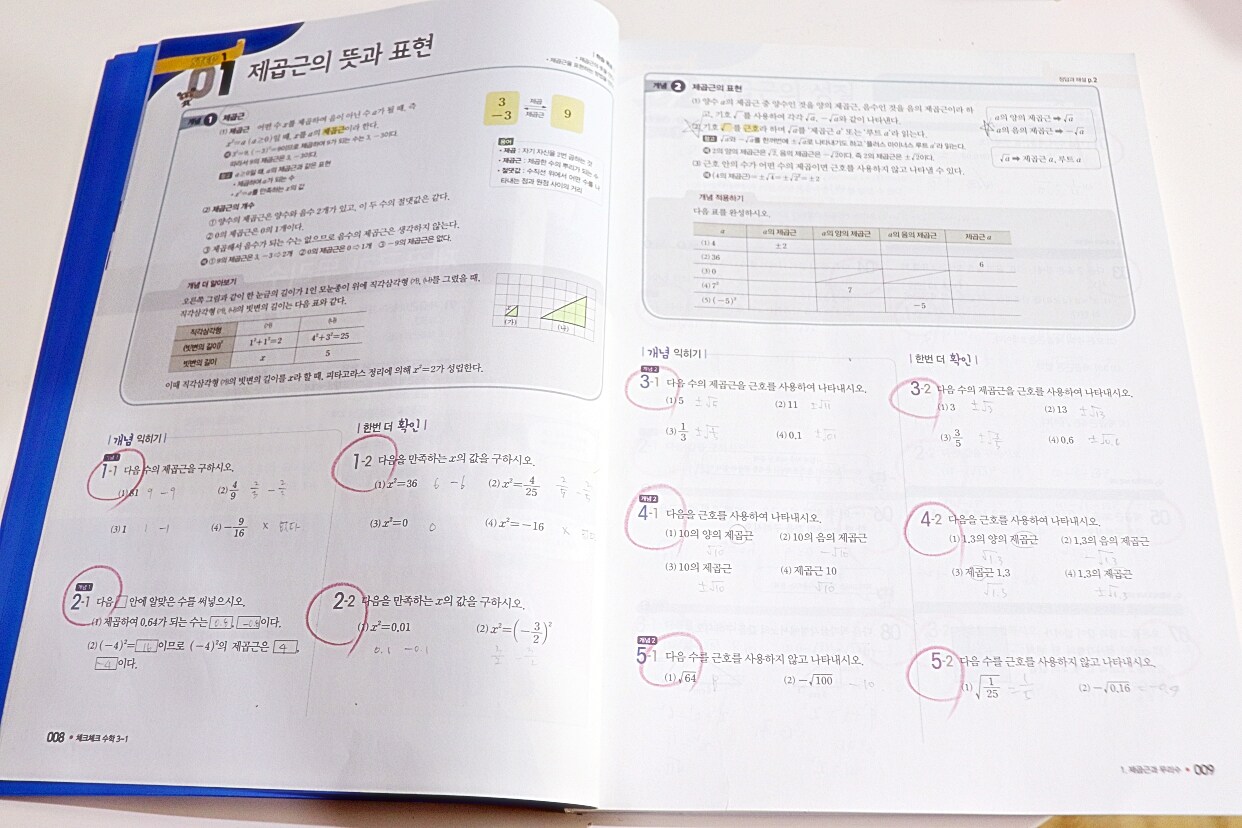 01 제곱근의 뜻과 표현
개념 1 제곱근
(1) 제곱근 어떤 수 x를 제곱하여 음이 아닌 수 a가 될 때, 즉
x²=a (a≥0)일 때, x를 a의 제곱근이라 한다.
3²=9, (-3)²=9이므로 제곱하여 9가 되는 수는 3, -3이다.
따라서 9의 제곱근은 3, -3이다.
참고 a≥0일 때, a의 제곱근과 같은 표현
• 제곱하여 a가 되는 수
• x²=a를 만족하는 x의 값
(2) 제곱근의 개수
① 양수의 제곱근은 양수와 음수 2개가 있고, 이 두 수의 절댓값은 같다.
② 0의 제곱근은 0의 1개이다.
③ 제곱해서 음수가 되는 수는 없으므로 음수의 제곱근은 생각하지 않는다.
① 9의 제곱근은 3, -3 ⇨ 2개 ② 0의 제곱근은 0 ⇨ 1개 ③ -9의 제곱근은 없다.
3
-3
제곱
제곱근
9
용어
• 제곱 : 자기 자신을 2번 곱하는 것
• 제곱근 : 제곱한 수의 뿌리가 되는 수
• 절댓값 : 수직선 위에서 어떤 수를 나
타내는 점과 원점 사이의 거리
개념 더 알아보기
오른쪽 그림과 같이 한 눈금의 길이가 1인 모눈종이 위에 직각삼각형 ㈎, ㈏를 그렸을 때,
직각삼각형 ㈎, ㈏의 빗변의 길이는 다음 표와 같다.
직각삼각형 ㈎ ㈏
(빗변의 길이)² 1²+1²=2 4²+3²=25
빗변의 길이 x 5
(가) (나)
이때 직각삼각형 ㈎의 빗변의 길이를 x라 할 때, 피타고라스 정리에 의해 x²=2가 성립한다.
개념 익히기
개념 1
1-1 다음 수의 제곱근을 구하시오.
(1) 81 9 -9 (2) 4/9 2/3 -2/3
(3) 1 1 -1 (4) -9/16 × 없다
개념 1
2-1 다음 □ 안에 알맞은 수를 써넣으시오.
(1) 제곱하여 0.64가 되는 수는 0.8, -0.8이다.
(2) (-4)²=16이므로 (-4)²의 제곱근은 4,
-4이다.
한번 더 확인
1-2 다음을 만족하는 x의 값을 구하시오.
(1) x²=36 6 -6 (2) x²=4/25
(3) x²=0 0 (4) x²=-16 ×
2-2 다음을 만족하는 x의 값을 구하시오.
(1) x²=0.01 (2) x²=(-3/2)²
0.1 -0.1
008 • 체크체크 수학 3-1
정답과 해설 p.2
개념 2 제곱근의 표현
(1) 양수 a의 제곱근 중 양수인 것을 양의 제곱근, 음수인 것을 음의 제곱근이라 하
고, 기호 √ 를 사용하여 각각 √a, -√a와 같이 나타낸다.
(2) 기호 √ 를 근호라 하며 √a를 '제곱근 a' 또는 '루트 a'라 읽는다.
참고 √a와 -√a를 한꺼번에 ±√a로 나타내기도 하고 '플러스 마이너스 루트 a'라 읽는다.
2의 양의 제곱근은 √2, 음의 제곱근은 -√2이다. 즉 2의 제곱근은 ±√2이다.
(3) 근호 안의 수가 어떤 수의 제곱이면 근호를 사용하지 않고 나타낼 수 있다.
(4의 제곱근)=±√4=±√2²=±2
a의 양의 제곱근 ⇨ √a
a의 음의 제곱근 ⇨ -√a
√a ⇨ 제곱근 a, 루트 a
개념 적용하기
다음 표를 완성하시오.
a a의 제곱근 a의 양의 제곱근 a의 음의 제곱근 제곱근 a
(1) 4 ±2
(2) 36 6
(3) 0
(4) 7² 7
(5) (-5)² -5
개념 익히기
개념 2
3-1 다음 수의 제곱근을 근호를 사용하여 나타내시오.
(1) 5 ±√5 (2) 11 ±√11
(3) 1/3 (4) 0.1 ±√0.1
개념 2
4-1 다음을 근호를 사용하여 나타내시오.
(1) 10의 양의 제곱근 (2) 10의 음의 제곱근
√10 -√10
(3) 10의 제곱근 (4) 제곱근 10
±√10 √10
개념 2
5-1 다음 수를 근호를 사용하지 않고 나타내시오.
(1) √64 8 (2) -√100 -10
한번 더 확인
3-2 다음 수의 제곱근을 근호를 사용하여 나타내시오.
(1) 3 ±√3 (2) 13 ±√13
(3) 3/5 (4) 0.6 ±√0.6
4-2 다음을 근호를 사용하여 나타내시오.
(1) 1.3의 양의 제곱근 (2) 1.3의 음의 제곱근
√1.3 -√1.3
(3) 제곱근 1.3 (4) 1.3의 제곱근
√1.3 ±√1.3
5-2 다음 수를 근호를 사용하지 않고 나타내시오.
(1) √1/25 =1/5 (2) -√0.16
1. 제곱근과 무리수 • 009